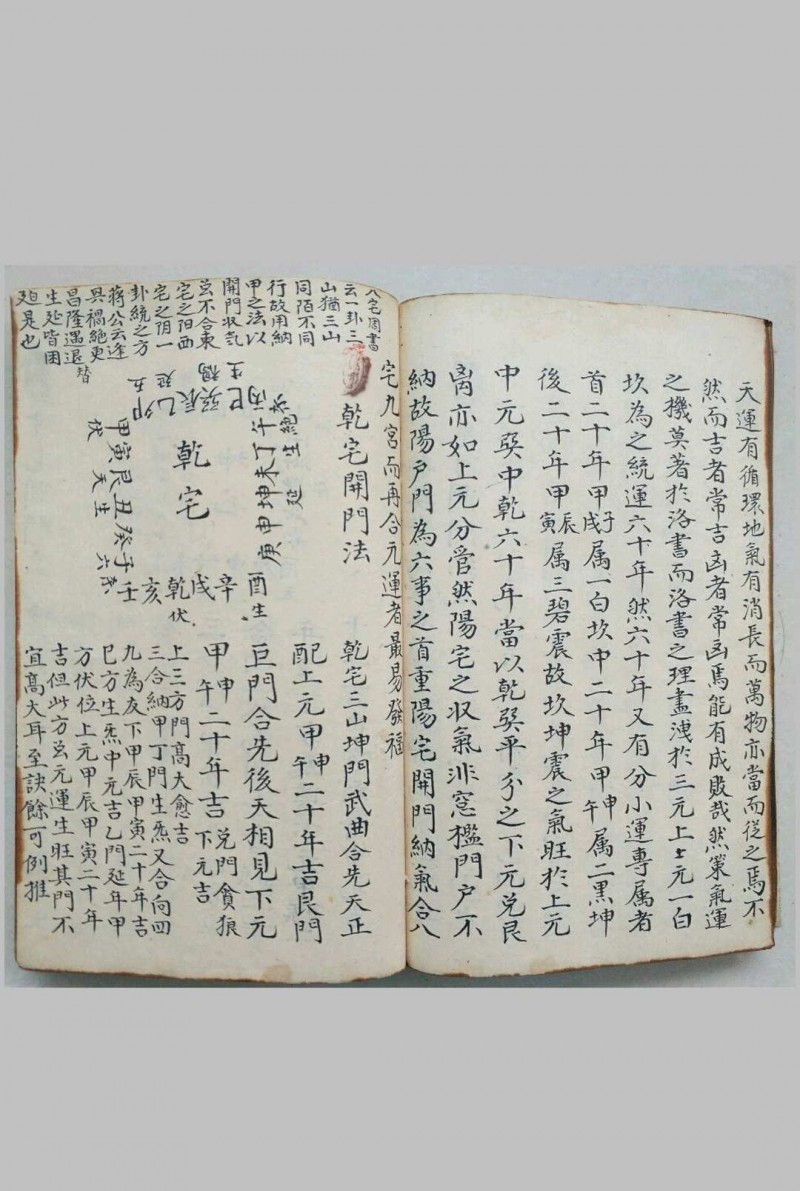 天運有循環地氣有消長而萬物亦當而従之焉不
然而吉者常吉凶者常凶焉能有成敗哉然策氣運
之機莫著於洛書而洛書之理盡洩於三元上上元一白
坎為之統運六十年然六十年又有分小運專属者
首二十年甲子戌属一白坎中二十年甲申午属二黑坤
後二十年甲辰寅属三碧震故坎坤震之氣旺於上元
中元巽中乾六十年當以乾巽平分之下元兌艮
离亦如上元分管然陽宅之収氣非窓檻門户不
納故陽户門為六事之首重陽宅開門納氣合八
宅九宮而再合元運者最易發福
八宅周書
云一卦三
山猶三山
同陌不同
行故用納
甲之法以
開門収氣
豈不合東
宅之阳西
宅之阴一
卦統之方
蒋公云逢
具禍絶更
昌隆遇退替
生延皆困
廹是也
乾宅開門法
乾宅
丙午丁未坤申庚
巳巽辰乙卯
甲寅艮丑癸子
壬亥乾戌辛酉
伏
生
乾宅三山坤門武曲合先天正
配上元甲申午二十年吉艮門
巨門合先後天相見下元
甲申午二十年吉兌門貪狼下元吉
上三方門高大愈吉
三合納甲丁門生炁又合向四
九為友下甲辰甲寅二十年吉
巳方生炁中元吉乙門延年甲
方伏位上元甲辰甲寅二十年
吉但此方豈元運生旺其門不
宜高大耳至訣餘可例推